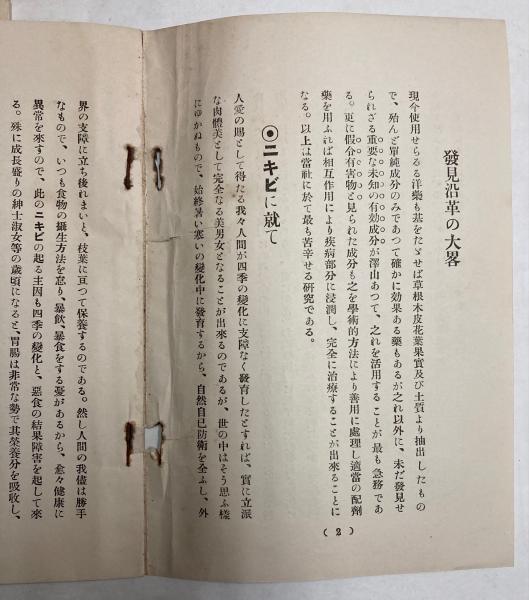 發見沿革の大畧
現今使用せらるる洋藥も基をたゞせば草根木皮花葉果實及び土質より抽出したもの
で、殆んど單純成分のみであつて確かに効果ある藥もあるが之れ以外に、未だ發見せ
られざる重要な未知の有効成分が澤山あつて、之れを活用することが最も急務であ
る。更に假令有害物と見られた成分も之を學術的方法により善用に處理し適當の配劑
藥を用ふれば相互作用により疾病部分に浸潤し、完全に治療することが出來ることに
なる。以上は當社に於て最も苦辛せる研究である。
◉ニキビに就て
人愛の賜として得たる我々人間が四季の變化に支障なく發育したとすれば、實に立派
な肉體美として完全なる美男女となることが出來るのであるが、世の中はそう思ふ樣
にゆかぬもので、始終暑い寒いの變化中に發育するから、自然自己防衛を全ふし、外
界の支障に立ち後れまいと、枝葉に亘つて保養するのである。然し人間の我儘は勝手
なもので、いつも食物の攝生方法を怠り、暴飮、暴食をする憂があるから、愈々健康に
異常を來すので、此のニキビの起る主因も四季の變化と、惡食の結果障害を起して來
る。殊に成長盛りの紳士淑女等の歳頃になると、胃腸は非常な勢で其榮養分を吸收し、
(2)